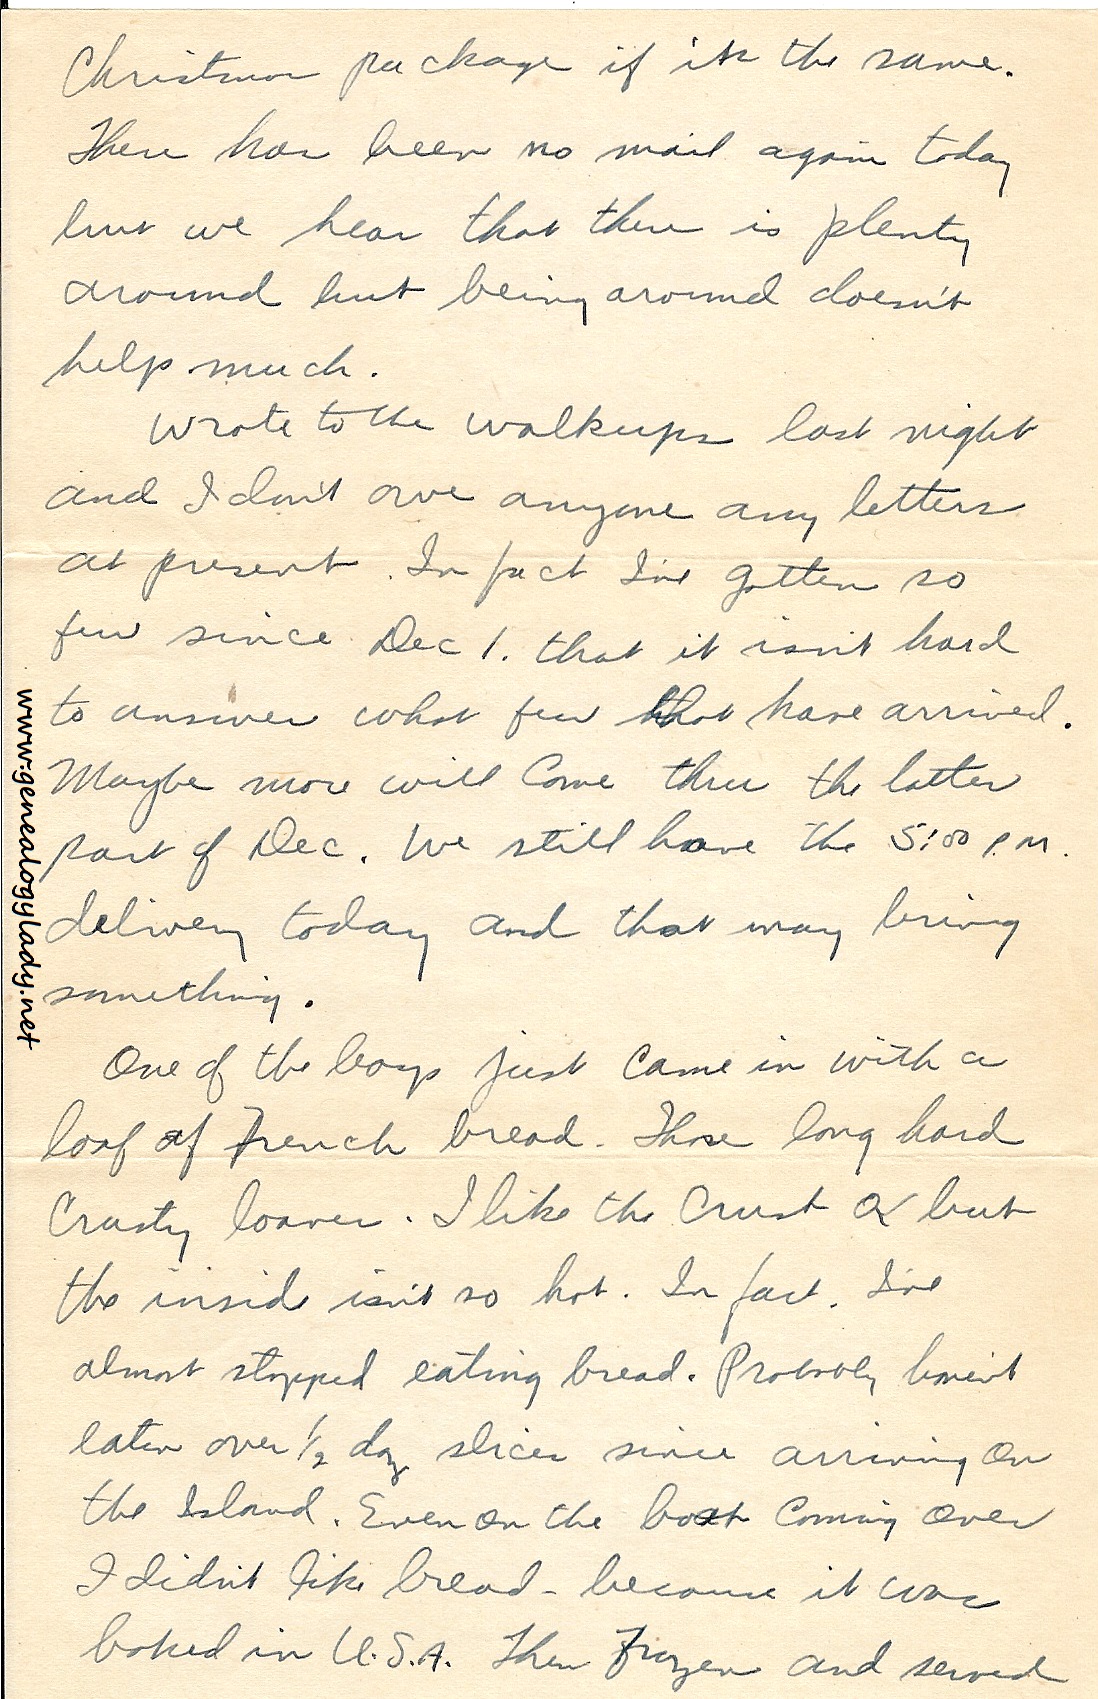 Christmas package if it's the same.
There has been no mail again today
but we hear that there is plenty
around but being around doesn't
help much.
Wrote to the Walkups last night
and I don't owe anyone any letters
at present. In fact I've gotten so
few since Dec 1. that it isn't hard
to answer what few that have arrived.
Maybe more will come thru the latter
part of Dec. We still have the 5:00 P.M.
delivery today and that may bring
something.
One of the boys just came in with a
loaf of French bread. Those long hard
crusty loaves. I like the crust but
the inside isn't so hot. In fact, I've
almost stopped eating bread. Probably haven't
eaten over 1/2 doz slices since arriving on
the Island. Even on the boat coming over
I didn't like bread - because it was
baked in U.S.A. Then frozen and served
www.genealogylady.net